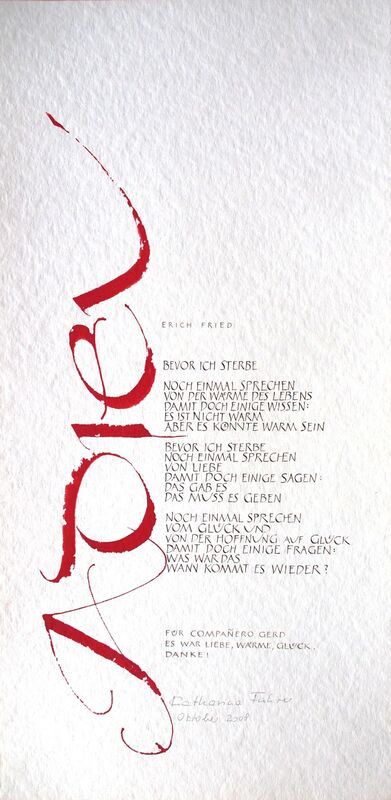 ERICH FRIED
BEVOR ICH STERBE
NOCH EINMAL SPRECHEN
VON DER WÄRME DES LEBENS
DAMIT DOCH EINIGE WISSEN:
ES IST NICHT WARM
ABER ES KÖNNTE WARM SEIN
BEVOR ICH STERBE
NOCH EINMAL SPRECHEN
VON LIEBE
DAMIT DOCH EINIGE SAGEN:
DAS GAB ES
DAS MUSS ES GEBEN
NOCH EINMAL SPRECHEN
VOM GLÜCK UND
VON DER HOFFNUNG AUF GLÜCK
DAMIT DOCH EINIGE FRAGEN:
WAS WAR DAS
WANN KOMMT ES WIEDER?
FÜR COMPAÑERO GERD
ES WAR LIEBE, WÄRME, GLÜCK.
DANKE!
Katharina
Oktober 2008